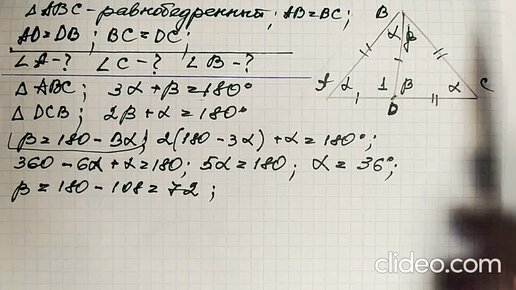 △ABC - равнобедренный; AB = BC;
AD = DB; BC = DC;
∠A - ? ∠C - ? ∠B - ?
△ABC; 3α + β = 180°
△DCB; 2β + α = 180°
β = 180 - 3α; 2(180 - 3α) + α = 180°;
360 - 6α + α = 180; 5α = 180; α = 36°;
β = 180 - 108 = 72;
B
α β
A α 1 β α C
D
clideo.com